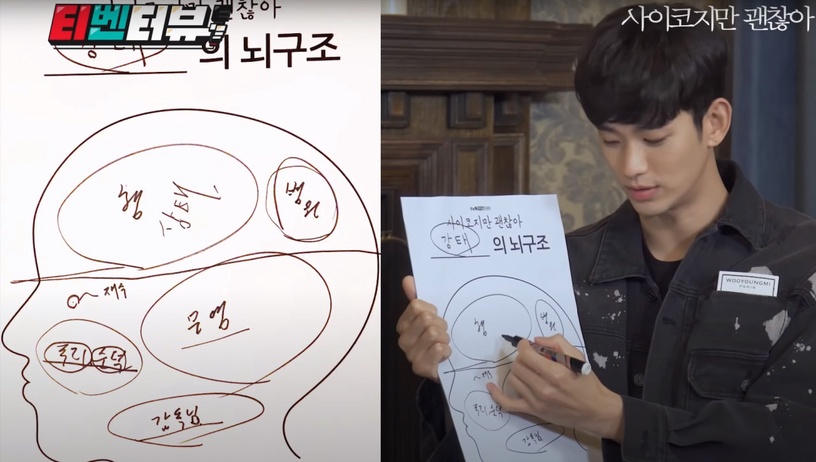 괜찮아
티벤터뷰
의 뇌구조
형
병원
재수
문영
주리 순덕
감독님
사이코지만 괜찮아
사이코지만 괜찮아
강태 의 뇌구조
형
병원
주리 순덕
감독님
WOOYOUNGMI